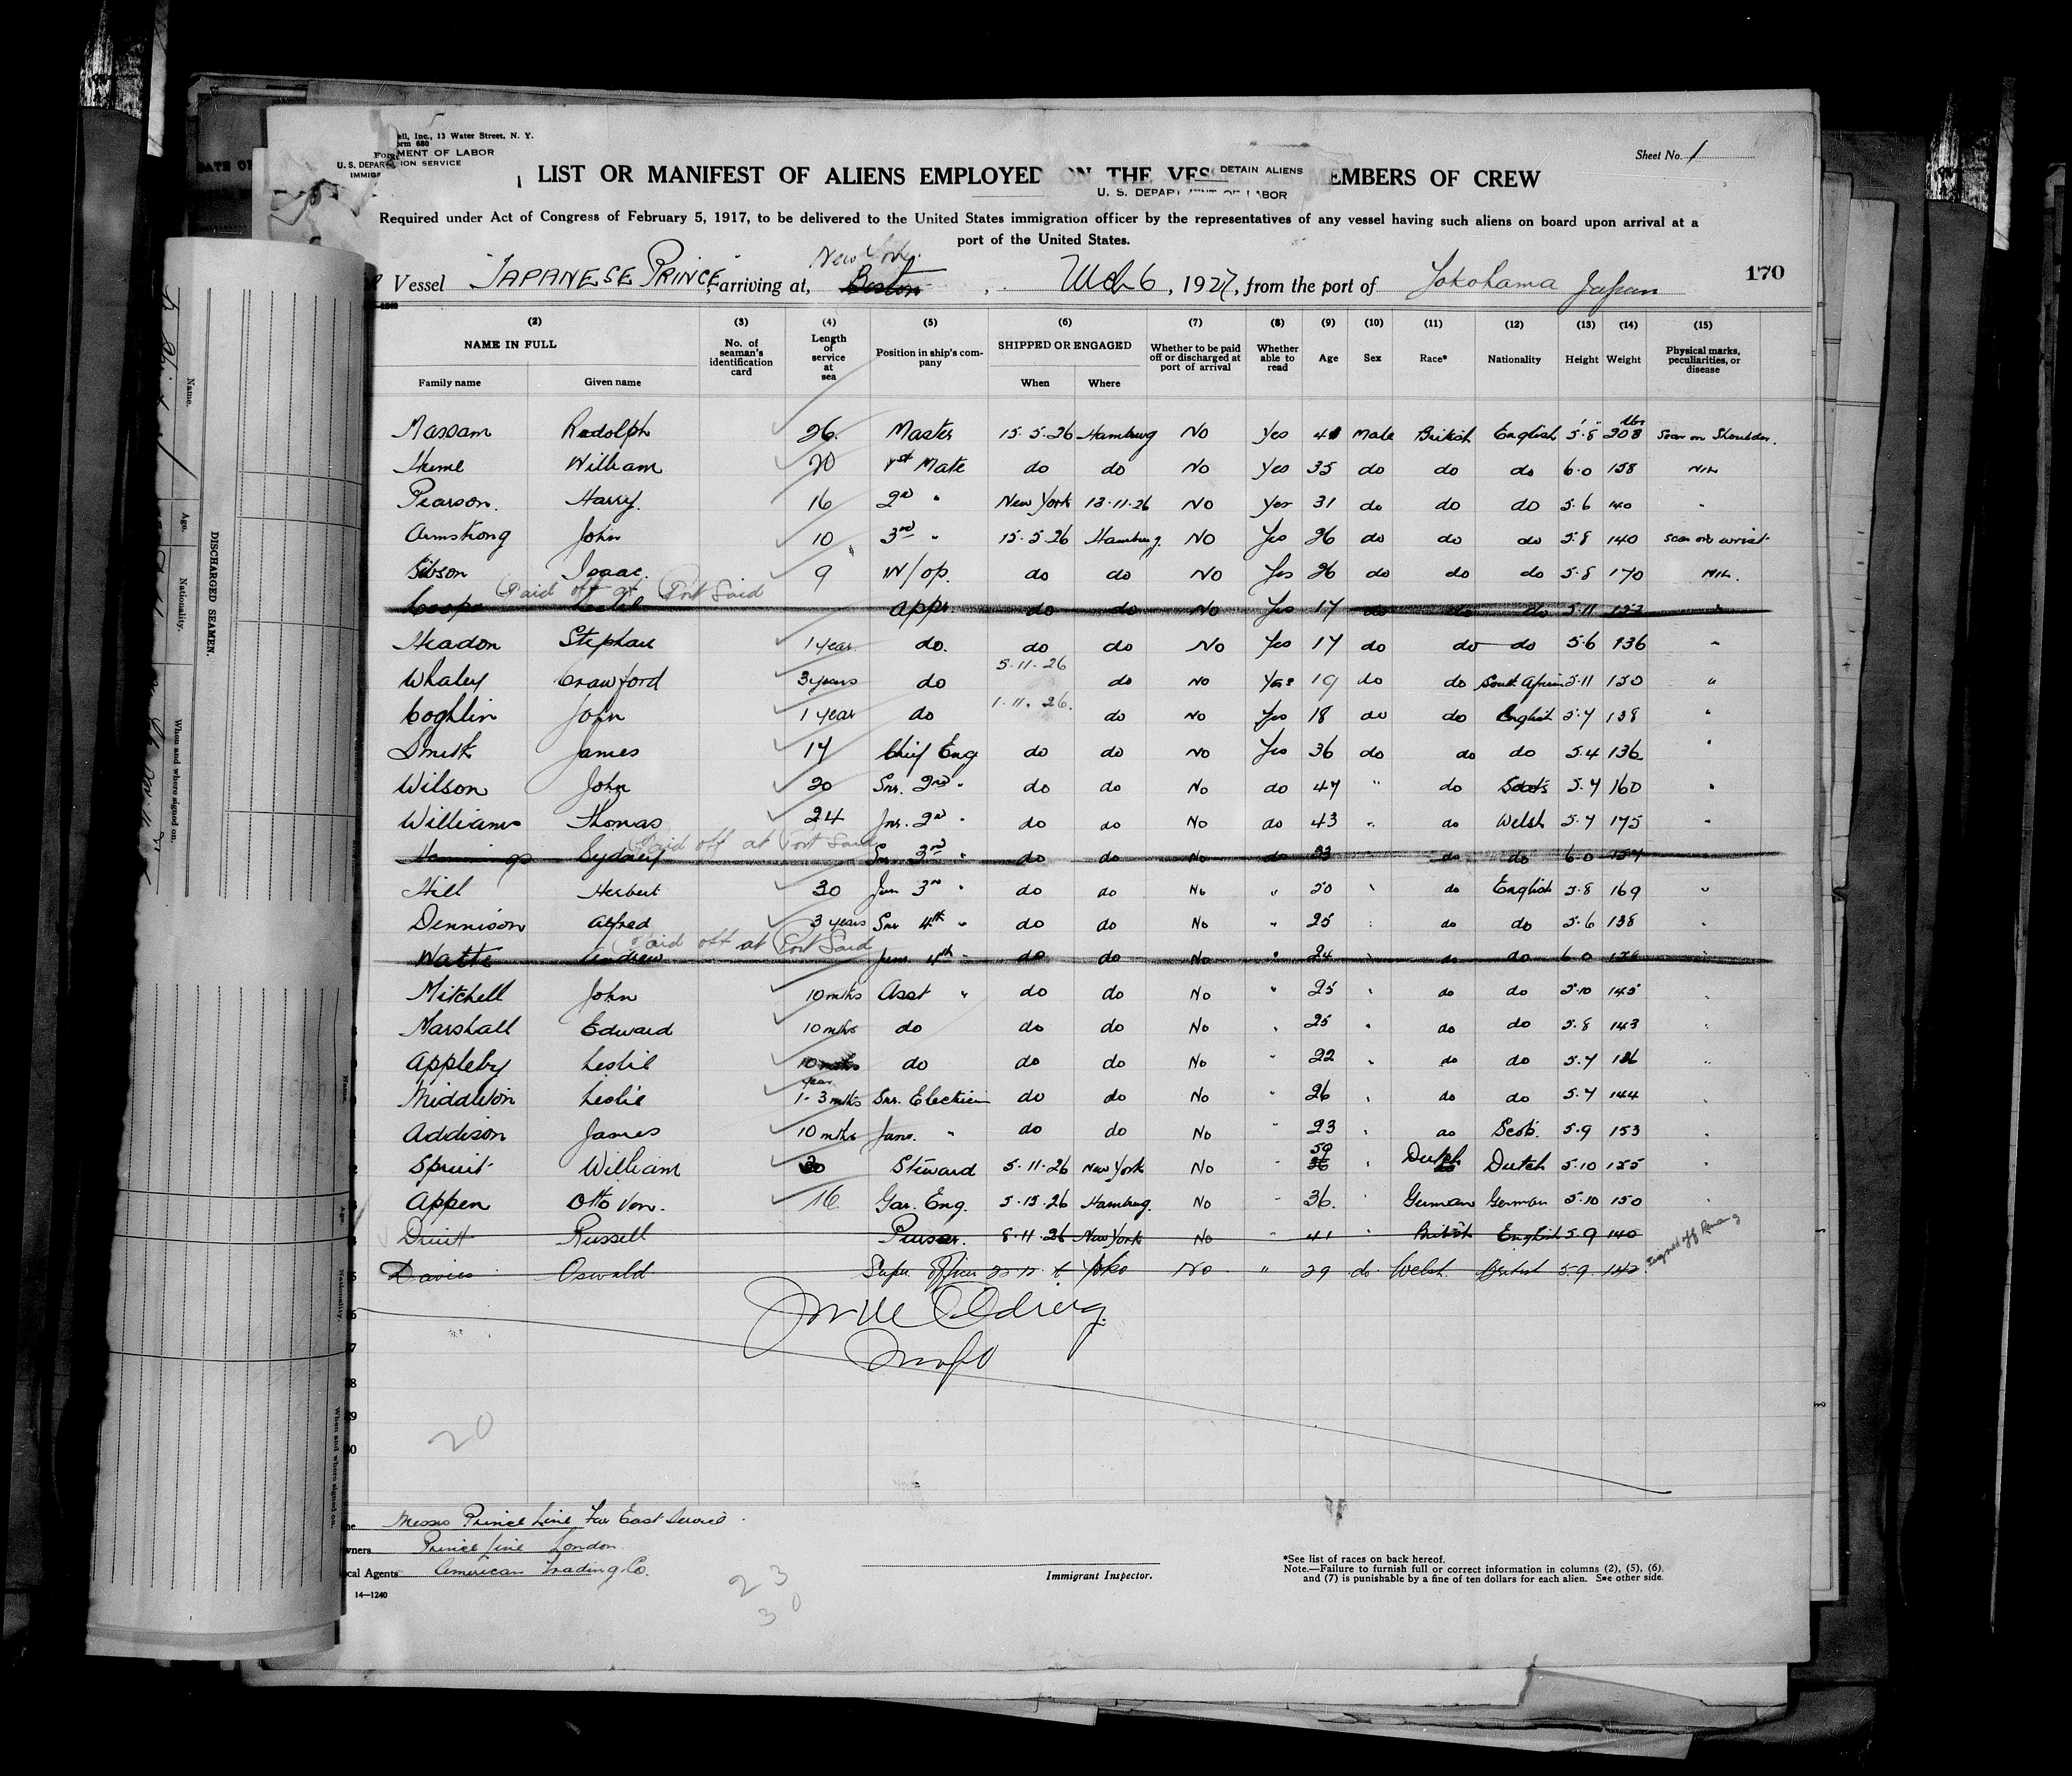 ell, Inc., 13 Water Street, N. Y.
orm 680
MENT OF LABOR
U. S. DEPAR ION SERVICE
IMMIG
Sheet No. 1
LIST OR MANIFEST OF ALIENS EMPLOYED ON THE VES EMBERS OF CREW
DETAIN ALIENS
U. S. DEPARTMENT OF LABOR
Required under Act of Congress of February 5, 1917, to be delivered to the United States immigration officer by the representatives of any vessel having such aliens on board upon arrival at a
port of the United States.
New York.
Vessel "JAPANESE PRINCE", arriving at, Boston, Mch 6, 1927, from the port of Yokohama Japan
170
(2) (3) (4) (5) (6) (7) (8) (9) (10) (11) (12) (13) (14) (15)
NAME IN FULL
Family name Given name
No. of seaman's identification card
Length of service at sea
Position in ship's company
SHIPPED OR ENGAGED
When Where
Whether to be paid off or discharged at port of arrival
Whether able to read
Age
Sex
Race*
Nationality
Height
Weight
Physical marks, peculiarities, or disease
Massam Rudolph 26 Master 15.5.26 Hamburg No Yes 41 Male British English 5.8 208 lbs Scar on Shoulder.
Hume William 20 1st Mate do do No Yes 35 do do do 6.0 158 Nil
Pearson. Harry. 16 2nd " New York 13.11.26 No Yes 31 do do do 5.6 140 "
Armstrong John 10 3rd " 15.5.26 Hamburg. No Yes 26 do do do 5.8 140 Scar on wrist.
Gibson Isaac. 9 W/op. do do No Yes 26 do do do 5.8 170 Nil.
Paid off at Port Said
Cooper Leslie Appr. do do No Yes 17 do do do 5.11 "
Headon Stephen 1 year do. do do No Yes 17 do do do 5.6 136 "
5.11.26
Whaley Crawford 3 years do do No Yes 19 do do South African 5.11 150 "
1.11.26.
Coghlin John 1 year do do No Yes 18 do do English 5.7 138 "
Smith James 17 Chief Eng do do No Yes 36 do do do 5.4 136 "
Wilson John 20 Snr. 2nd " do do No do 47 " do Scots 5.7 160 "
Williams Thomas 24 Jnr. 2nd " do do No do 43 " do Welsh 5.7 175 "
Paid off at Port Said
Hemmings Sydney Snr 3rd " do do No do 23 do do 6.0 157
Hill Herbert 30 Jun 3rd " do do No " 50 " do English 5.8 169 "
Dennison Alfred 3 years Snr 4th " do do No " 25 " do do 5.6 138 "
Paid off at Port Said
Watts Andrew Junr. 4th " do do No " 24 " do do 6.0
Mitchell John 10 mths Asst " do do No " 25 " do do 5.10 145 "
Marshall Edward 10 mths do do do No " 25 " do do 5.8 143 "
Appleby Leslie 10 mths do do do No " 22 " do do 5.7 136 "
Middleton Leslie 1 year 3 mths Snr. Electrician do do No " 26 " do do 5.7 144 "
Addison James 10 mths Junr. " do do No " 23 " do Scots. 5.9 153 "
Spruit William 20 Steward 5.11.26 New York No " 59 36 " Dutch Dutch 5.10 155 "
Appen Otto Von. 16 Gar. Eng. 5.15.26 Hamburg. No " 36. " German German 5.10 150 "
Druitt Russell Purser. 8.11.26 New York No " 41 " British English 5.9 140
Signed off Penang
Davies Oswald Supr. Officer Yoko No " 29 do Welsh British 5.9. 142
20
Messrs Prince Line Far East Service.
wners Prince Line London
cal Agents American Trading Co.
14—1240
23
30
Immigrant Inspector.
*See list of races on back hereof.
Note.—Failure to furnish full or correct information in columns (2), (5), (6),
and (7) is punishable by a fine of ten dollars for each alien. See other side.
DISCHARGED SEAMEN.
Name. Age. Nationality. When and where signed on.
Name. Age. Nationality. When and where signed on.